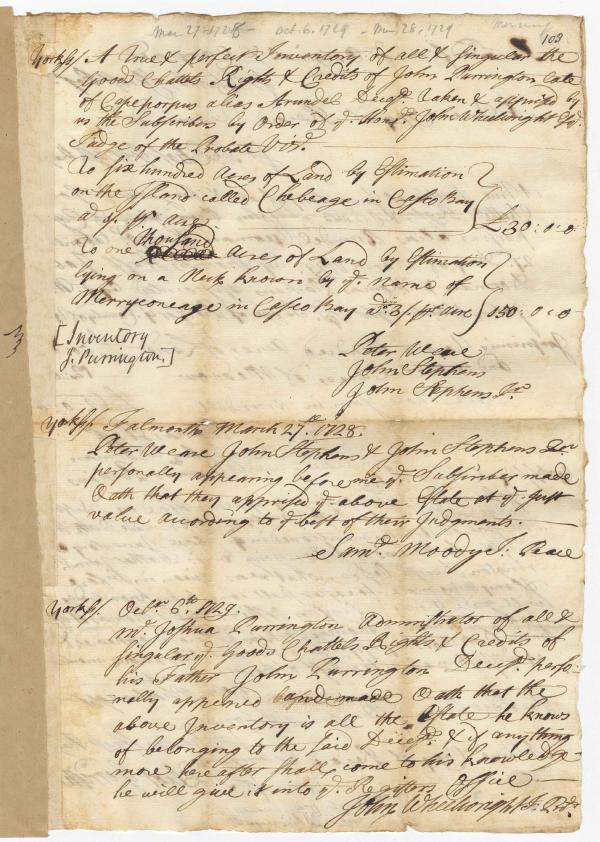 Mar. 27-1728 - Oct. 6, 1729 - Mar 28, 1729
103
York ss A True & perfect Inventory of all & Singular the
Goods Chattels Rights & Credits of John Purrington late
of Cape porpus alias Arundel Decsd. taken & apprised by
us the Subscribers by Order of ye. Honle. John Wheelwright Esq.
Judge of the Probate Vizt.
To six hundred Acres of Land by Estimation
on the Island called Chebeage in Casco Bay
£30:0:0
To one Thousand Acres of Land by Estimation
lying on a Neck known by ye. name of
Merryconeage in Casco Bay a 3/ pr. acre 150:0:0
[Inventory
J. Purrington.]
Peter Weare
John Stephens
John Stephens Jr.
York ss Falmouth March 27th. 1728.
Peter Weare John Stephens & John Stephens Jur
personally appearing before me ye. Subscriber made
Oath that they apprised ye. above Estate at ye. just
value acording to ye best of their Judgments.
Samll. Moody J: Peace
York ss. Octbr. 6th. 1729.
Mr. Joshua Purrington Administrator of all &
Singular ye. Goods Chattels Rights & Credits of
his Father John Purrington Decsd. perso-
nally appeared and made Oath that the
above Inventory is all the Estate he knows
of belonging to the said Decsd. & if anything
more hereafter shall come to his knowledge
he will give it into ye. Registers Office
John Wheelwright J. Prob.